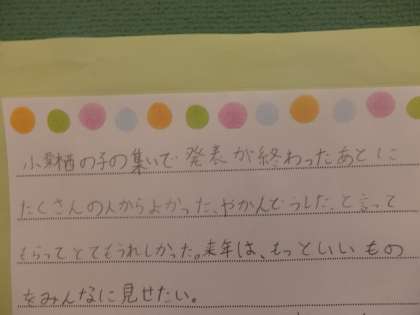 小楢の子の集いで発表が終わったあとに
たくさんの人からよかった、やかんどうした、と言って
もらってとてもうれしかった。来年は、もっといいもの
をみんなに見せたい。